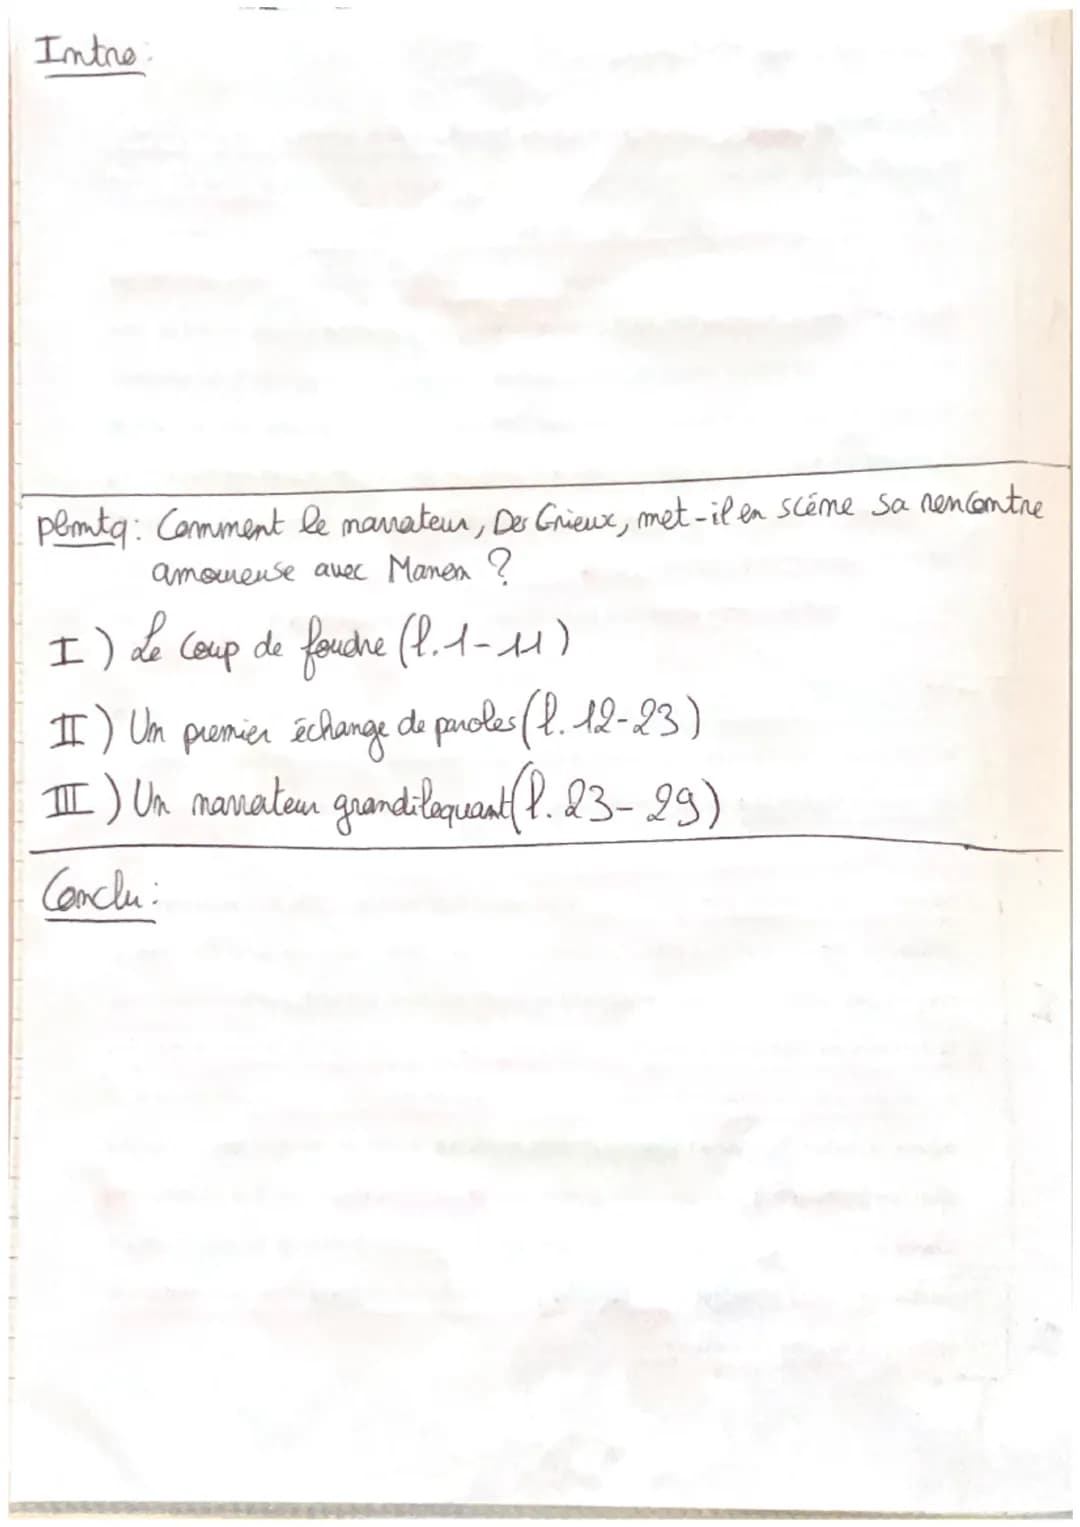 Intro:
pbmtq: Comment le narrateur, Des Grieux, met-il en scéne sa rencontre
amoureuse avec Manon ?
I) Le coup de foudre (l.1-11)
II) Un premier échange de paroles (l. 12-23)
III) Un narrateur grandiloquant (l. 23-29)
Conclu: